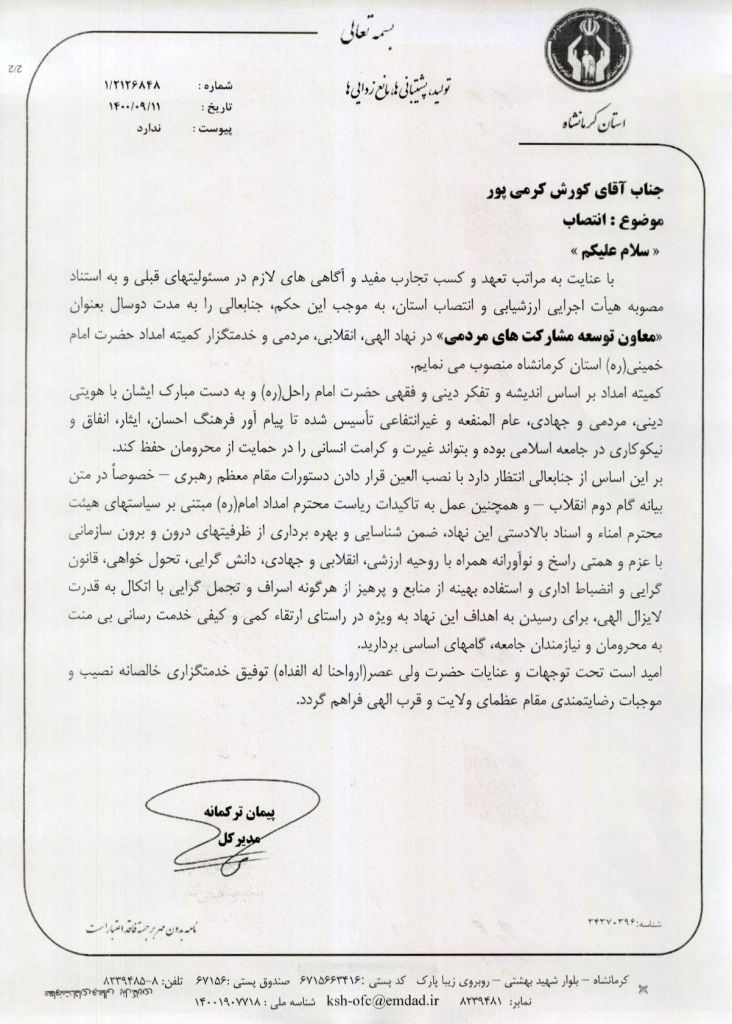 بسمه تعالی
تولید، پشتیبانی ها، مانع زدایی ها
استان کرمانشاه
2/2
شماره : ۱/۲۱۲۶۸۴۸
تاریخ : ۱۴۰۰/۰۹/۱۱
پیوست : ندارد
جناب آقای کورش کرمی پور
موضوع : انتصاب
« سلام علیکم »
با عنایت به مراتب تعهد و کسب تجارب مفید و آگاهی های لازم در مسئولیتهای قبلی و به استناد
مصوبه هیأت اجرایی ارزشیابی و انتصاب استان، به موجب این حکم، جنابعالی را به مدت دوسال بعنوان
«معاون توسعه مشارکت های مردمی» در نهاد الهی، انقلابی، مردمی و خدمتگزار کمیته امداد حضرت امام
خمینی(ره) استان کرمانشاه منصوب می نمایم.
کمیته امداد بر اساس اندیشه و تفکر دینی و فقهی حضرت امام راحل(ره) و به دست مبارک ایشان با هویتی
دینی، مردمی و جهادی، عام المنفعه و غیرانتفاعی تأسیس شده تا پیام آور فرهنگ احسان، ایثار، انفاق و
نیکوکاری در جامعه اسلامی بوده و بتواند غیرت و کرامت انسانی را در حمایت از محرومان حفظ کند.
بر این اساس از جنابعالی انتظار دارد با نصب العین قرار دادن دستورات مقام معظم رهبری – خصوصاً در متن
بیانه گام دوم انقلاب – و همچنین عمل به تاکیدات ریاست محترم امداد امام(ره) مبتنی بر سیاستهای هیئت
محترم امناء و اسناد بالادستی این نهاد، ضمن شناسایی و بهره برداری از ظرفیتهای درون و برون سازمانی
با عزم و همتی راسخ و نوآورانه همراه با روحیه ارزشی، انقلابی و جهادی، دانش گرایی، تحول خواهی، قانون
گرایی و انضباط اداری و استفاده بهینه از منابع و پرهیز از هرگونه اسراف و تجمل گرایی با اتکال به قدرت
لایزال الهی، برای رسیدن به اهداف این نهاد به ویژه در راستای ارتقاء کمی و کیفی خدمت رسانی بی منت
به محرومان و نیازمندان جامعه، گامهای اساسی بردارید.
امید است تحت توجهات و عنایات حضرت ولی عصر(ارواحنا له الفداه) توفیق خدمتگزاری خالصانه نصیب و
موجبات رضایتمندی مقام عظمای ولایت و قرب الهی فراهم گردد.
پیمان ترکمانه
مدیرکل
شناسه: ۳۴۳۷۰۳۹۶
نامه بدون مهر برجسته فاقد اعتبار است
کرمانشاه – بلوار شهید بهشتی – روبروی زیبا پارک کد پستی :۶۷۱۵۶۶۳۴۱۶ صندوق پستی :۶۷۱۵۶ تلفن: ۸-۸۲۳۹۴۸۵
نمابر: ۸۲۳۹۴۸۱ ksh-ofc@emdad.ir شناسه ملی : ۱۴۰۰۱۹۰۷۷۱۸